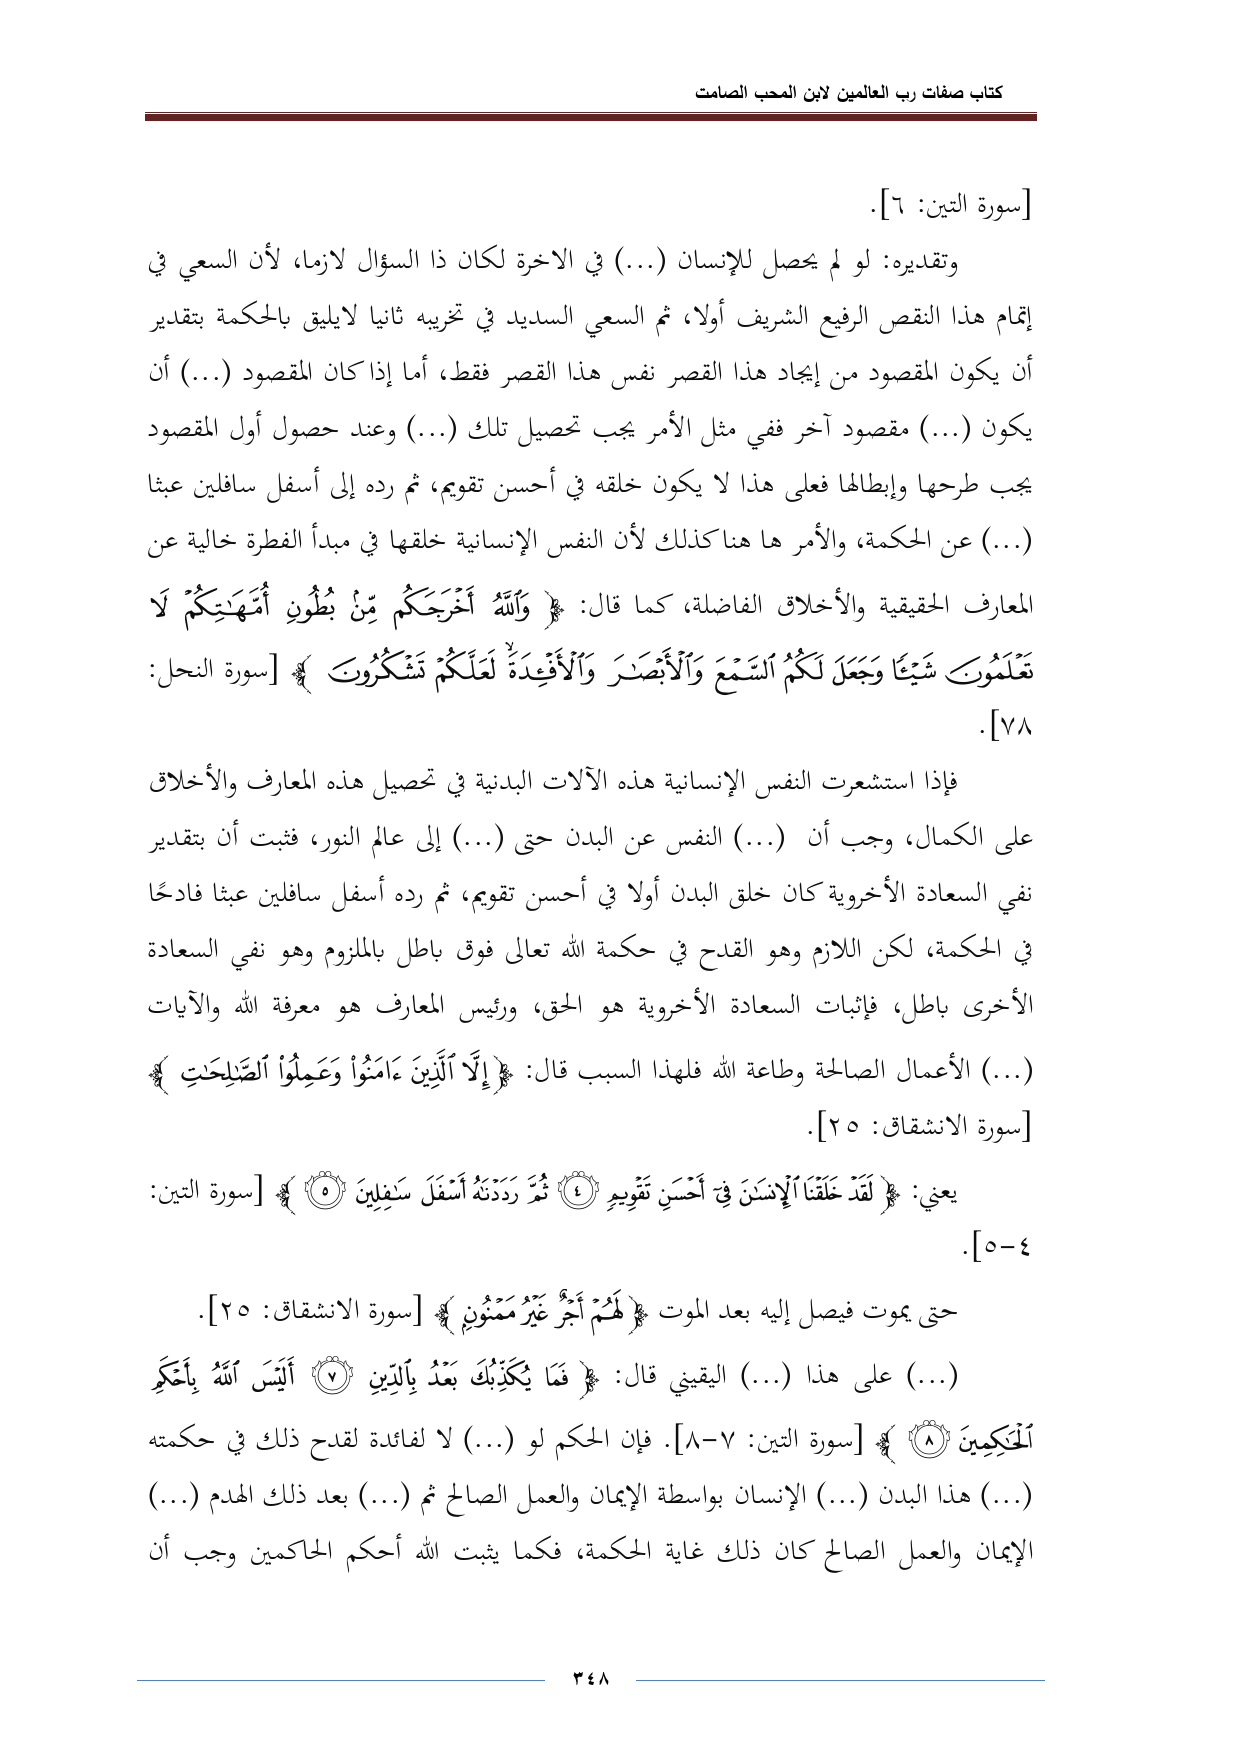 كتاب صفات رب العالمين لابن المحب الصامت
[سورة التين: ٦].
وتقديره: لو لم يحصل للإنسان (...) في الاخرة لكان ذا السؤال لازما، لأن السعي في
إتمام هذا النقص الرفيع الشريف أولا، ثم السعي السديد في تخريبه ثانيا لايليق بالحكمة بتقدير
أن يكون المقصود من إيجاد هذا القصر نفس هذا القصر فقط، أما إذا كان المقصود (...) أن
يكون (...) مقصود آخر ففي مثل الأمر يجب تحصيل تلك (...) وعند حصول أول المقصود
يجب طرحها وإبطالها فعلى هذا لا يكون خلقه في أحسن تقويم، ثم رده إلى أسفل سافلين عبثا
(...) عن الحكمة، والأمر ها هنا كذلك لأن النفس الإنسانية خلقها في مبدأ الفطرة خالية عن
المعارف الحقيقية والأخلاق الفاضلة، كما قال: ﴿ وَٱللَّهُ أَخۡرَجَكُم مِّنۢ بُطُونِ أُمَّهَٰتِكُمۡ لَا
تَعۡلَمُونَ شَيۡـٔٗا وَجَعَلَ لَكُمُ ٱلسَّمۡعَ وَٱلۡأَبۡصَٰرَ وَٱلۡأَفۡـِٔدَةَۙ لَعَلَّكُمۡ تَشۡكُرُونَ ﴾ [سورة النحل:
٧٨].
فإذا استشعرت النفس الإنسانية هذه الآلات البدنية في تحصيل هذه المعارف والأخلاق
على الكمال، وجب أن (...) النفس عن البدن حتى (...) إلى عالم النور، فثبت أن بتقدير
نفي السعادة الأخروية كان خلق البدن أولا في أحسن تقويم، ثم رده أسفل سافلين عبثا فادحًا
في الحكمة، لكن اللازم وهو القدح في حكمة الله تعالى فوق باطل بالملزوم وهو نفي السعادة
الأخرى باطل، فإثبات السعادة الأخروية هو الحق، ورئيس المعارف هو معرفة الله والآيات
(...) الأعمال الصالحة وطاعة الله فلهذا السبب قال: ﴿ إِلَّا ٱلَّذِينَ ءَامَنُواْ وَعَمِلُواْ ٱلصَّٰلِحَٰتِ ﴾
[سورة الانشقاق: ٢٥].
يعني: ﴿ لَقَدۡ خَلَقۡنَا ٱلۡإِنسَٰنَ فِيٓ أَحۡسَنِ تَقۡوِيمٖ ٤ ثُمَّ رَدَدۡنَٰهُ أَسۡفَلَ سَٰفِلِينَ ٥ ﴾ [سورة التين:
٤-٥].
حتى يموت فيصل إليه بعد الموت ﴿ لَهُمۡ أَجۡرٌ غَيۡرُ مَمۡنُونِۭ ﴾ [سورة الانشقاق: ٢٥].
(...) على هذا (...) اليقيني قال: ﴿ فَمَا يُكَذِّبُكَ بَعۡدُ بِٱلدِّينِ ٧ أَلَيۡسَ ٱللَّهُ بِأَحۡكَمِ
ٱلۡحَٰكِمِينَ ٨ ﴾ [سورة التين: ٧-٨]. فإن الحكم لو (...) لا لفائدة لقدح ذلك في حكمته
(...) هذا البدن (...) الإنسان بواسطة الإيمان والعمل الصالح ثم (...) بعد ذلك الهدم (...)
الإيمان والعمل الصالح كان ذلك غاية الحكمة، فكما يثبت الله أحكم الحاكمين وجب أن
٣٤٨